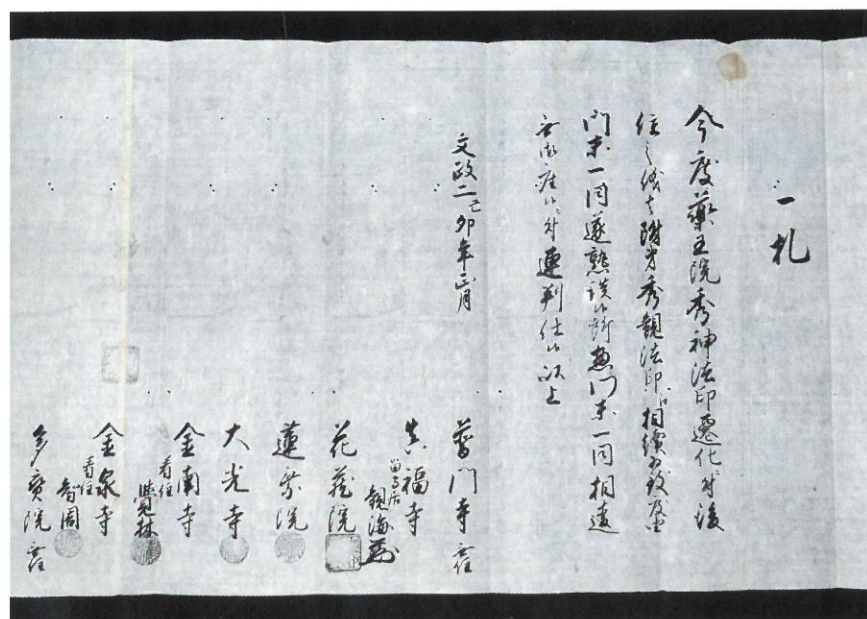 一札
今度薬王院秀神法印遷化ニ付後
住之儀者附弟秀観法印江相続為致度
門末一同遂熟談候所惣門末一同相違
無御座候ニ付連判仕候以上
文政二己卯年正月
普門寺 無住
真福寺
留守居 観海
花蔵院
蓮乗院
大光寺
金南寺
看住 覚林
金泉寺
看住 智周
多宝院 無住